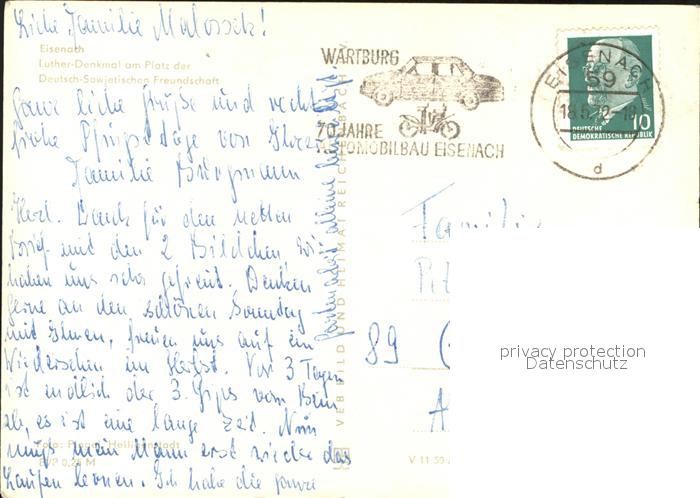 Liebe Familie Malossek!
Eisenach
Luther-Denkmal am Platz der
Deutsch-Sowjetischen Freundschaft
Ganz liebe Grüße und recht
frohe Pfingsttage von Ihrer
Familie
Herzl. Dank für den netten
Brief und den 2 Bildchen, wir
haben uns sehr gefreut. Denken
gerne an den schönen Sonntag
mit Ihnen, freuen uns auf ein
Wiedersehen im Herbst. Vor 3 Tagen
ist endlich der 3. Gips vom Bein
ab, es ist eine lange Zeit. Nun
muß mein Mann erst wieder das
Laufen lernen. Ich habe die ganze
Gartenarbeit alleine
Foto: Heiligenstadt
EVP 0,20 M
VEB BILD UND HEIMAT REICHENBACH
V 11 50
WARTBURG
70 JAHRE
AUTOMOBILBAU EISENACH
EISENACH
59
18.5.
d
10
DEUTSCHE
DEMOKRATISCHE REPUBLIK
Familie
89
privacy protection
Datenschutz